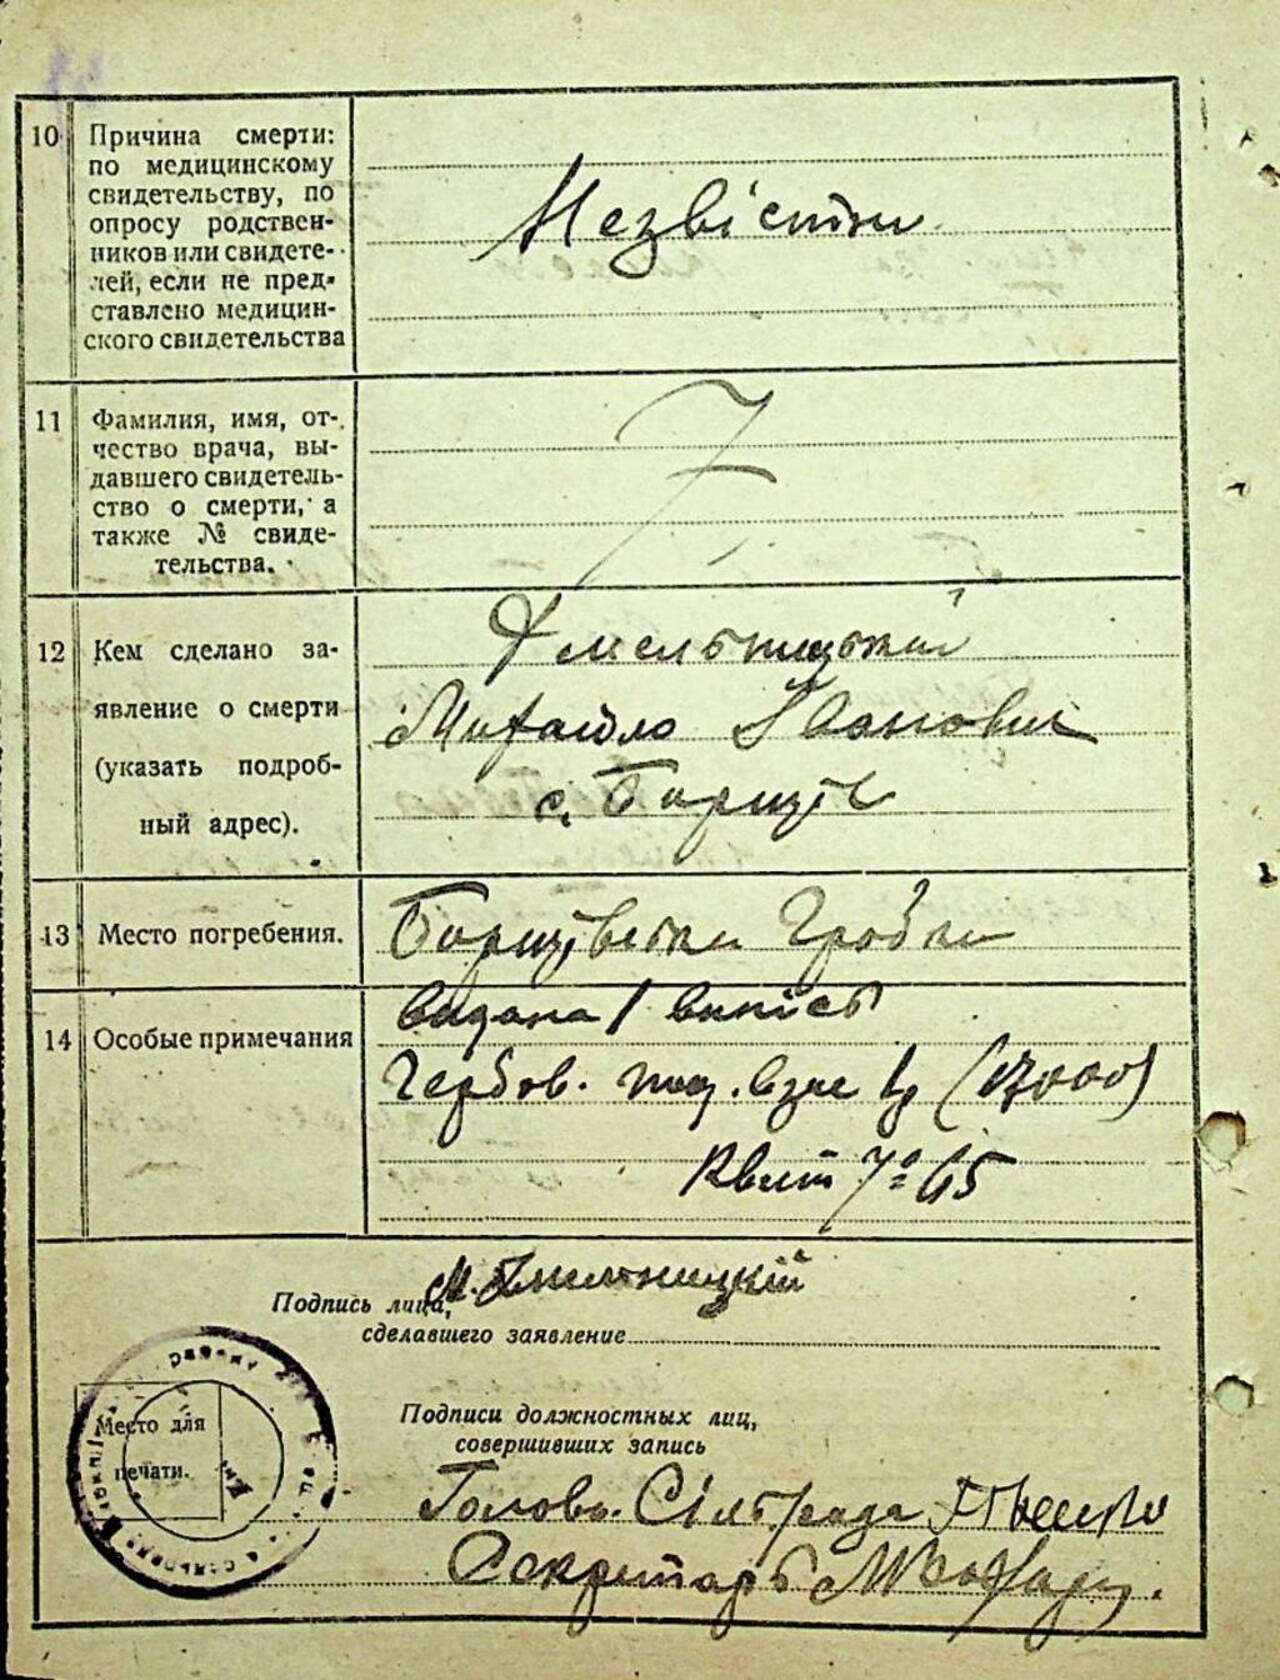 10 Причина смерти:
по медицинскому
свидетельству, по
опросу родствен-
ников или свидете-
лей, если не пред-
ставлено медицин-
ского свидетельства
Незвістни
11 Фамилия, имя, от-
чество врача, вы-
давшего свидетель-
ство о смерти, а
также № свиде-
тельства.
12 Кем сделано за-
явление о смерти
(указать подроб-
ный адрес).
Хмельницький
Михайло Іванович
с. Борщів
13 Место погребения.
Борщівески Гробки
14 Особые примечания
видана 1 випись
Гербов. под.
Квит № 65
М. Хмельницкій
Подпись лица,
сделавшего заявление
Место для
печати.
Подписи должностных лиц,
совершивших запись
Голова. Сільрада
Секретарь